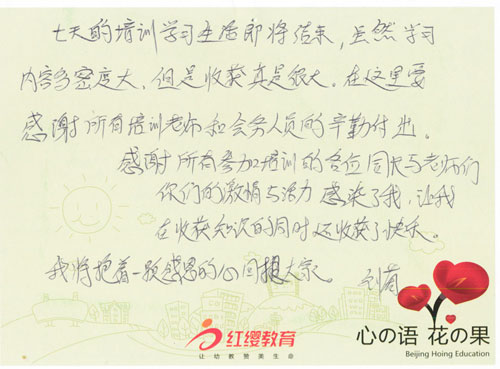 七天的培训学习生活即将结束，虽然学习
内容多密度大，但是收获真是很大。在这里要
感谢所有培训老师和会务人员的辛勤付出。
感谢所有参加培训的各位园长与老师们
你们的激情与活力感染了我，让我
在收获知识的同时还收获了快乐。
我将抱着一颗感恩的心回报大家。
红缨教育
让幼教赞美生命
心の语 花の果
Beijing Hoing Education